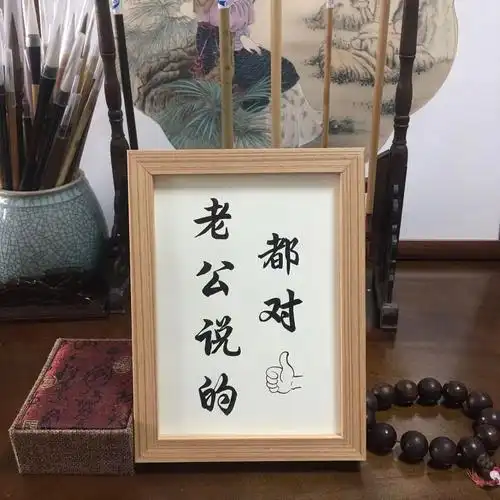 老公说的
都对